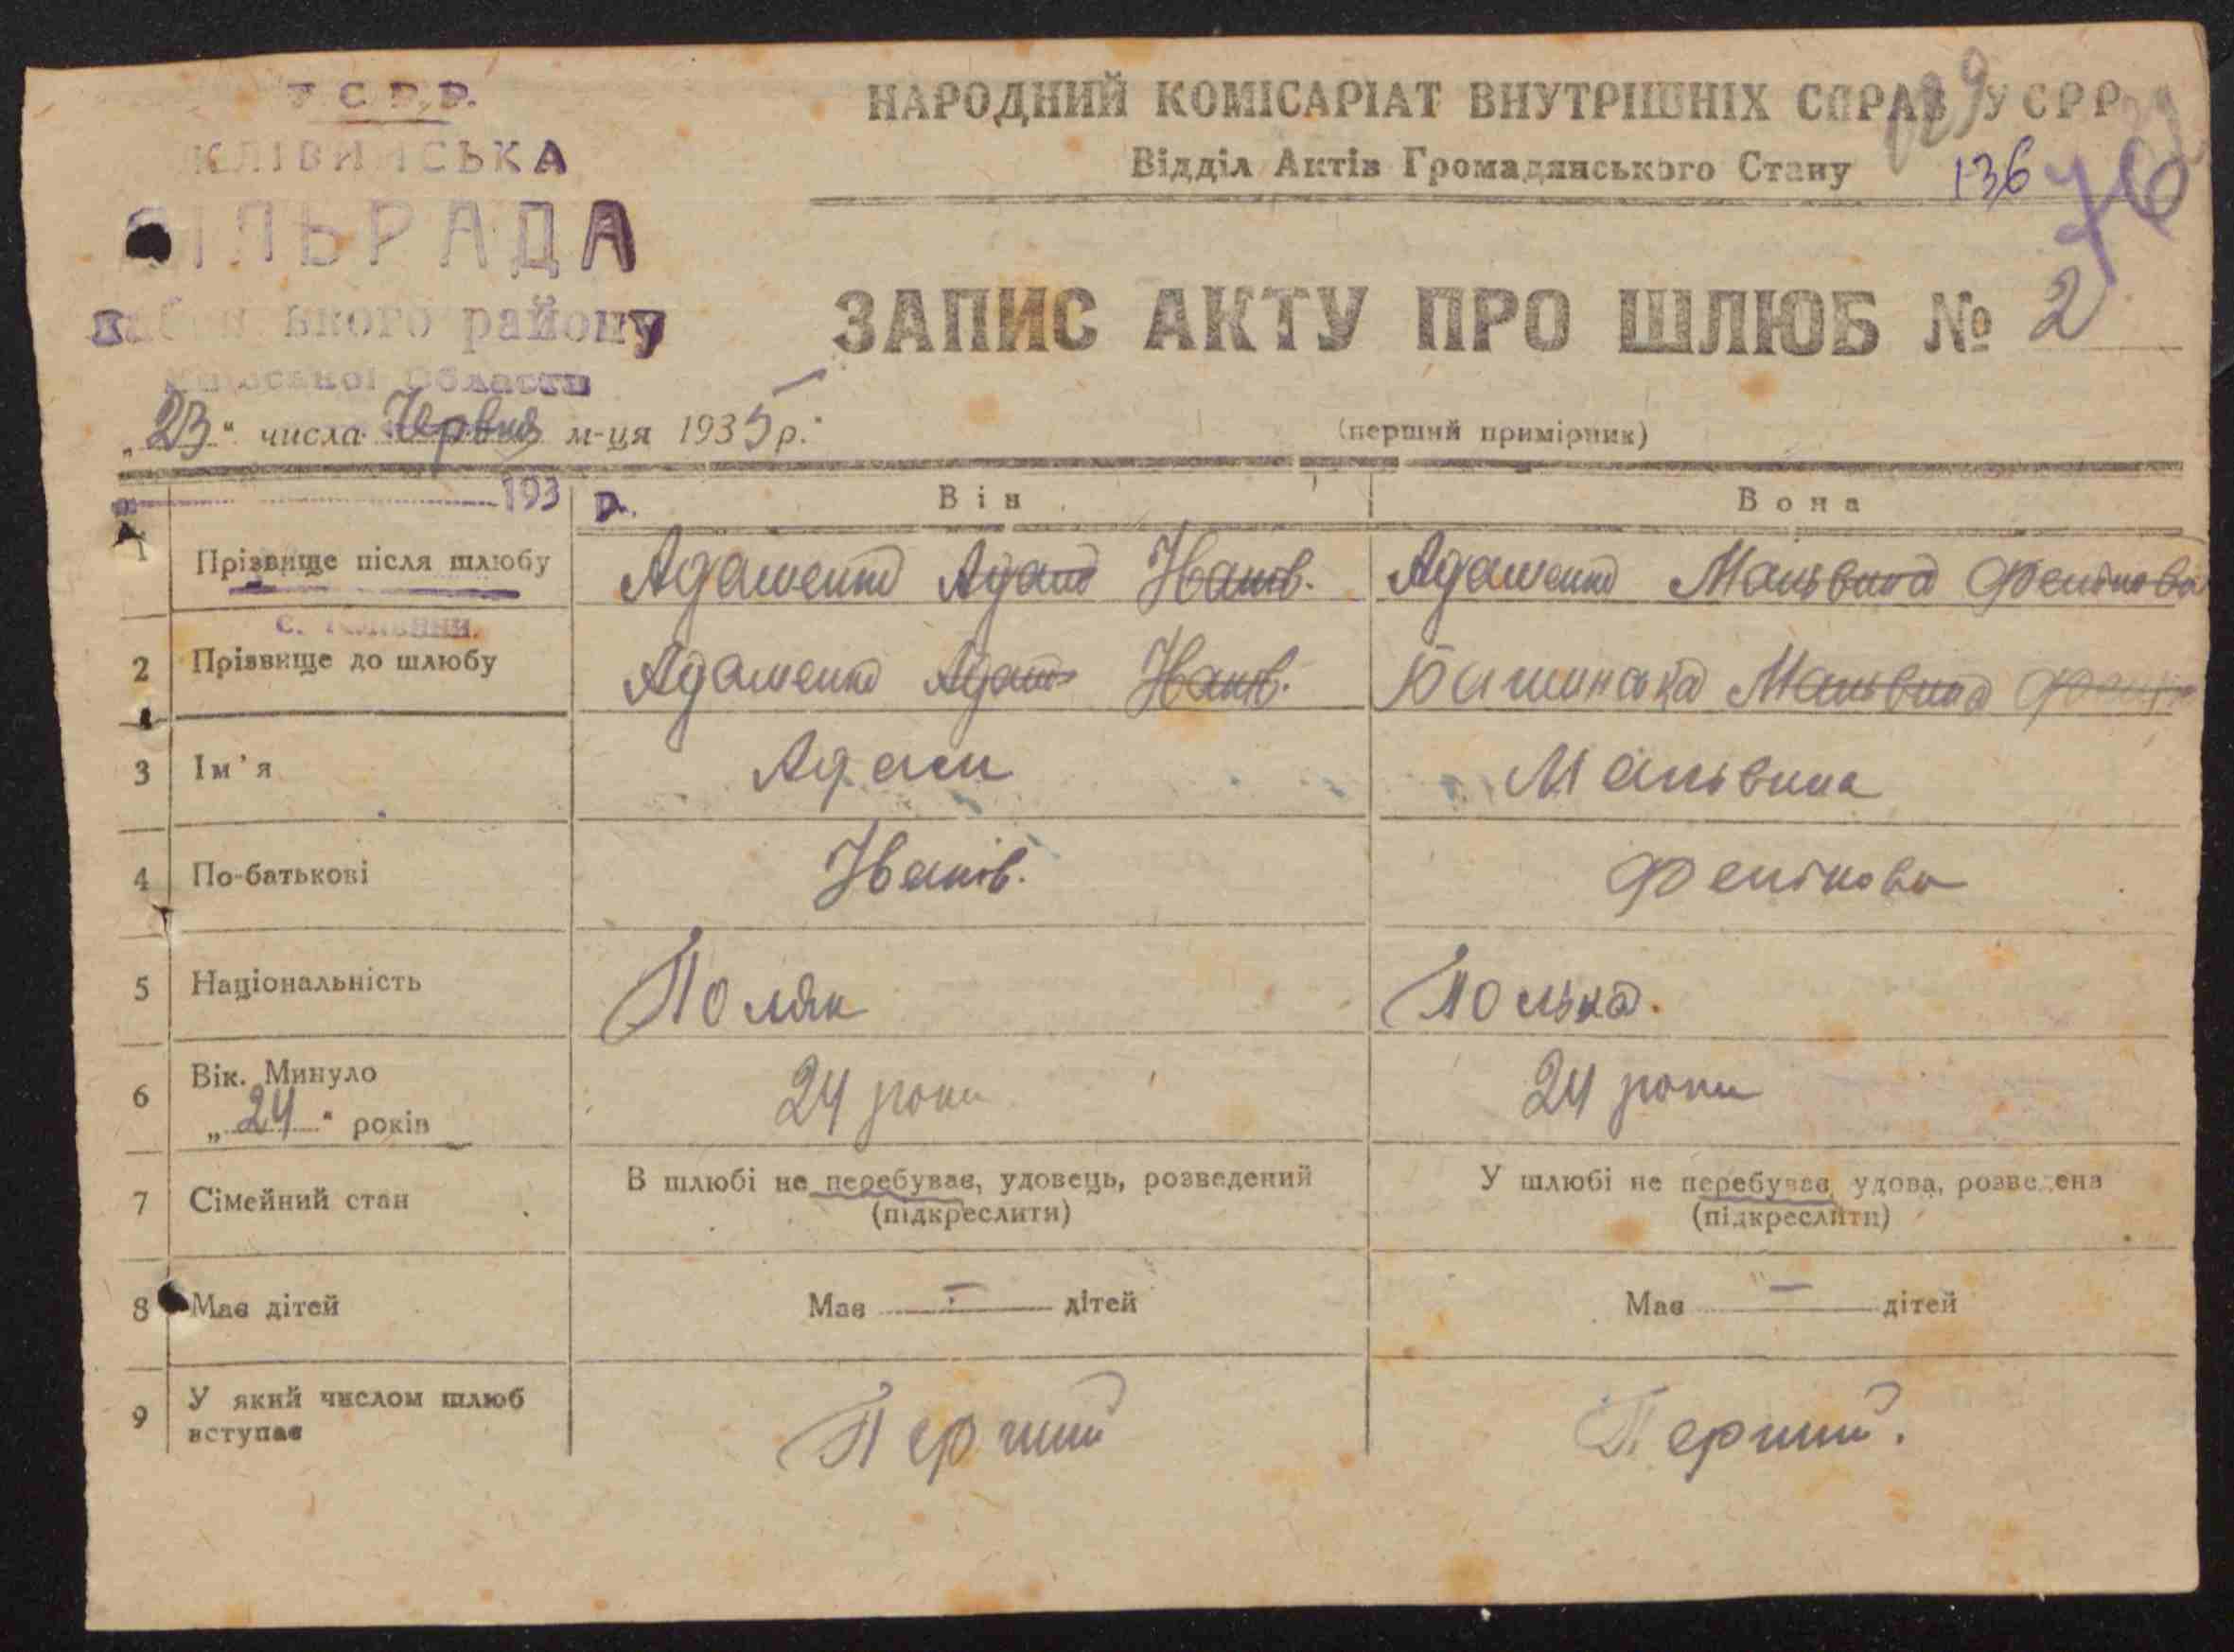 УСРР
КЛІВИНСЬКА
СІЛЬРАДА
району
Області
НАРОДНИЙ КОМІСАРІАТ ВНУТРІШНІХ СПРАВ УСРР
129
Відділ Актів Громадянського Стану
136
76
ЗАПИС АКТУ ПРО ШЛЮБ № 2
„23" числа Червня м-ця 1935 р.
(перший примірник)
193 р.
Він
Вона
1 Прізвище після шлюбу
Адаменко Адам Іванів.
Адаменко Мальвина Феліківа
с.
2 Прізвище до шлюбу
Адаменко Адам Іванів.
Мальвина
3 Ім'я
Адам
Мальвина
4 По-батькові
Іванів.
Фелікова
5 Національність
Поляк
Полька.
6 Вік. Минуло
„24" років
24 роки
24 роки
7 Сімейний стан
В шлюбі не перебуває, удовець, розведений
(підкреслити)
У шлюбі не перебуває, удова, розведена
(підкреслити)
8 Має дітей
Має — дітей
Має — дітей
9 У який числом шлюб
вступає
Перший
Перший.